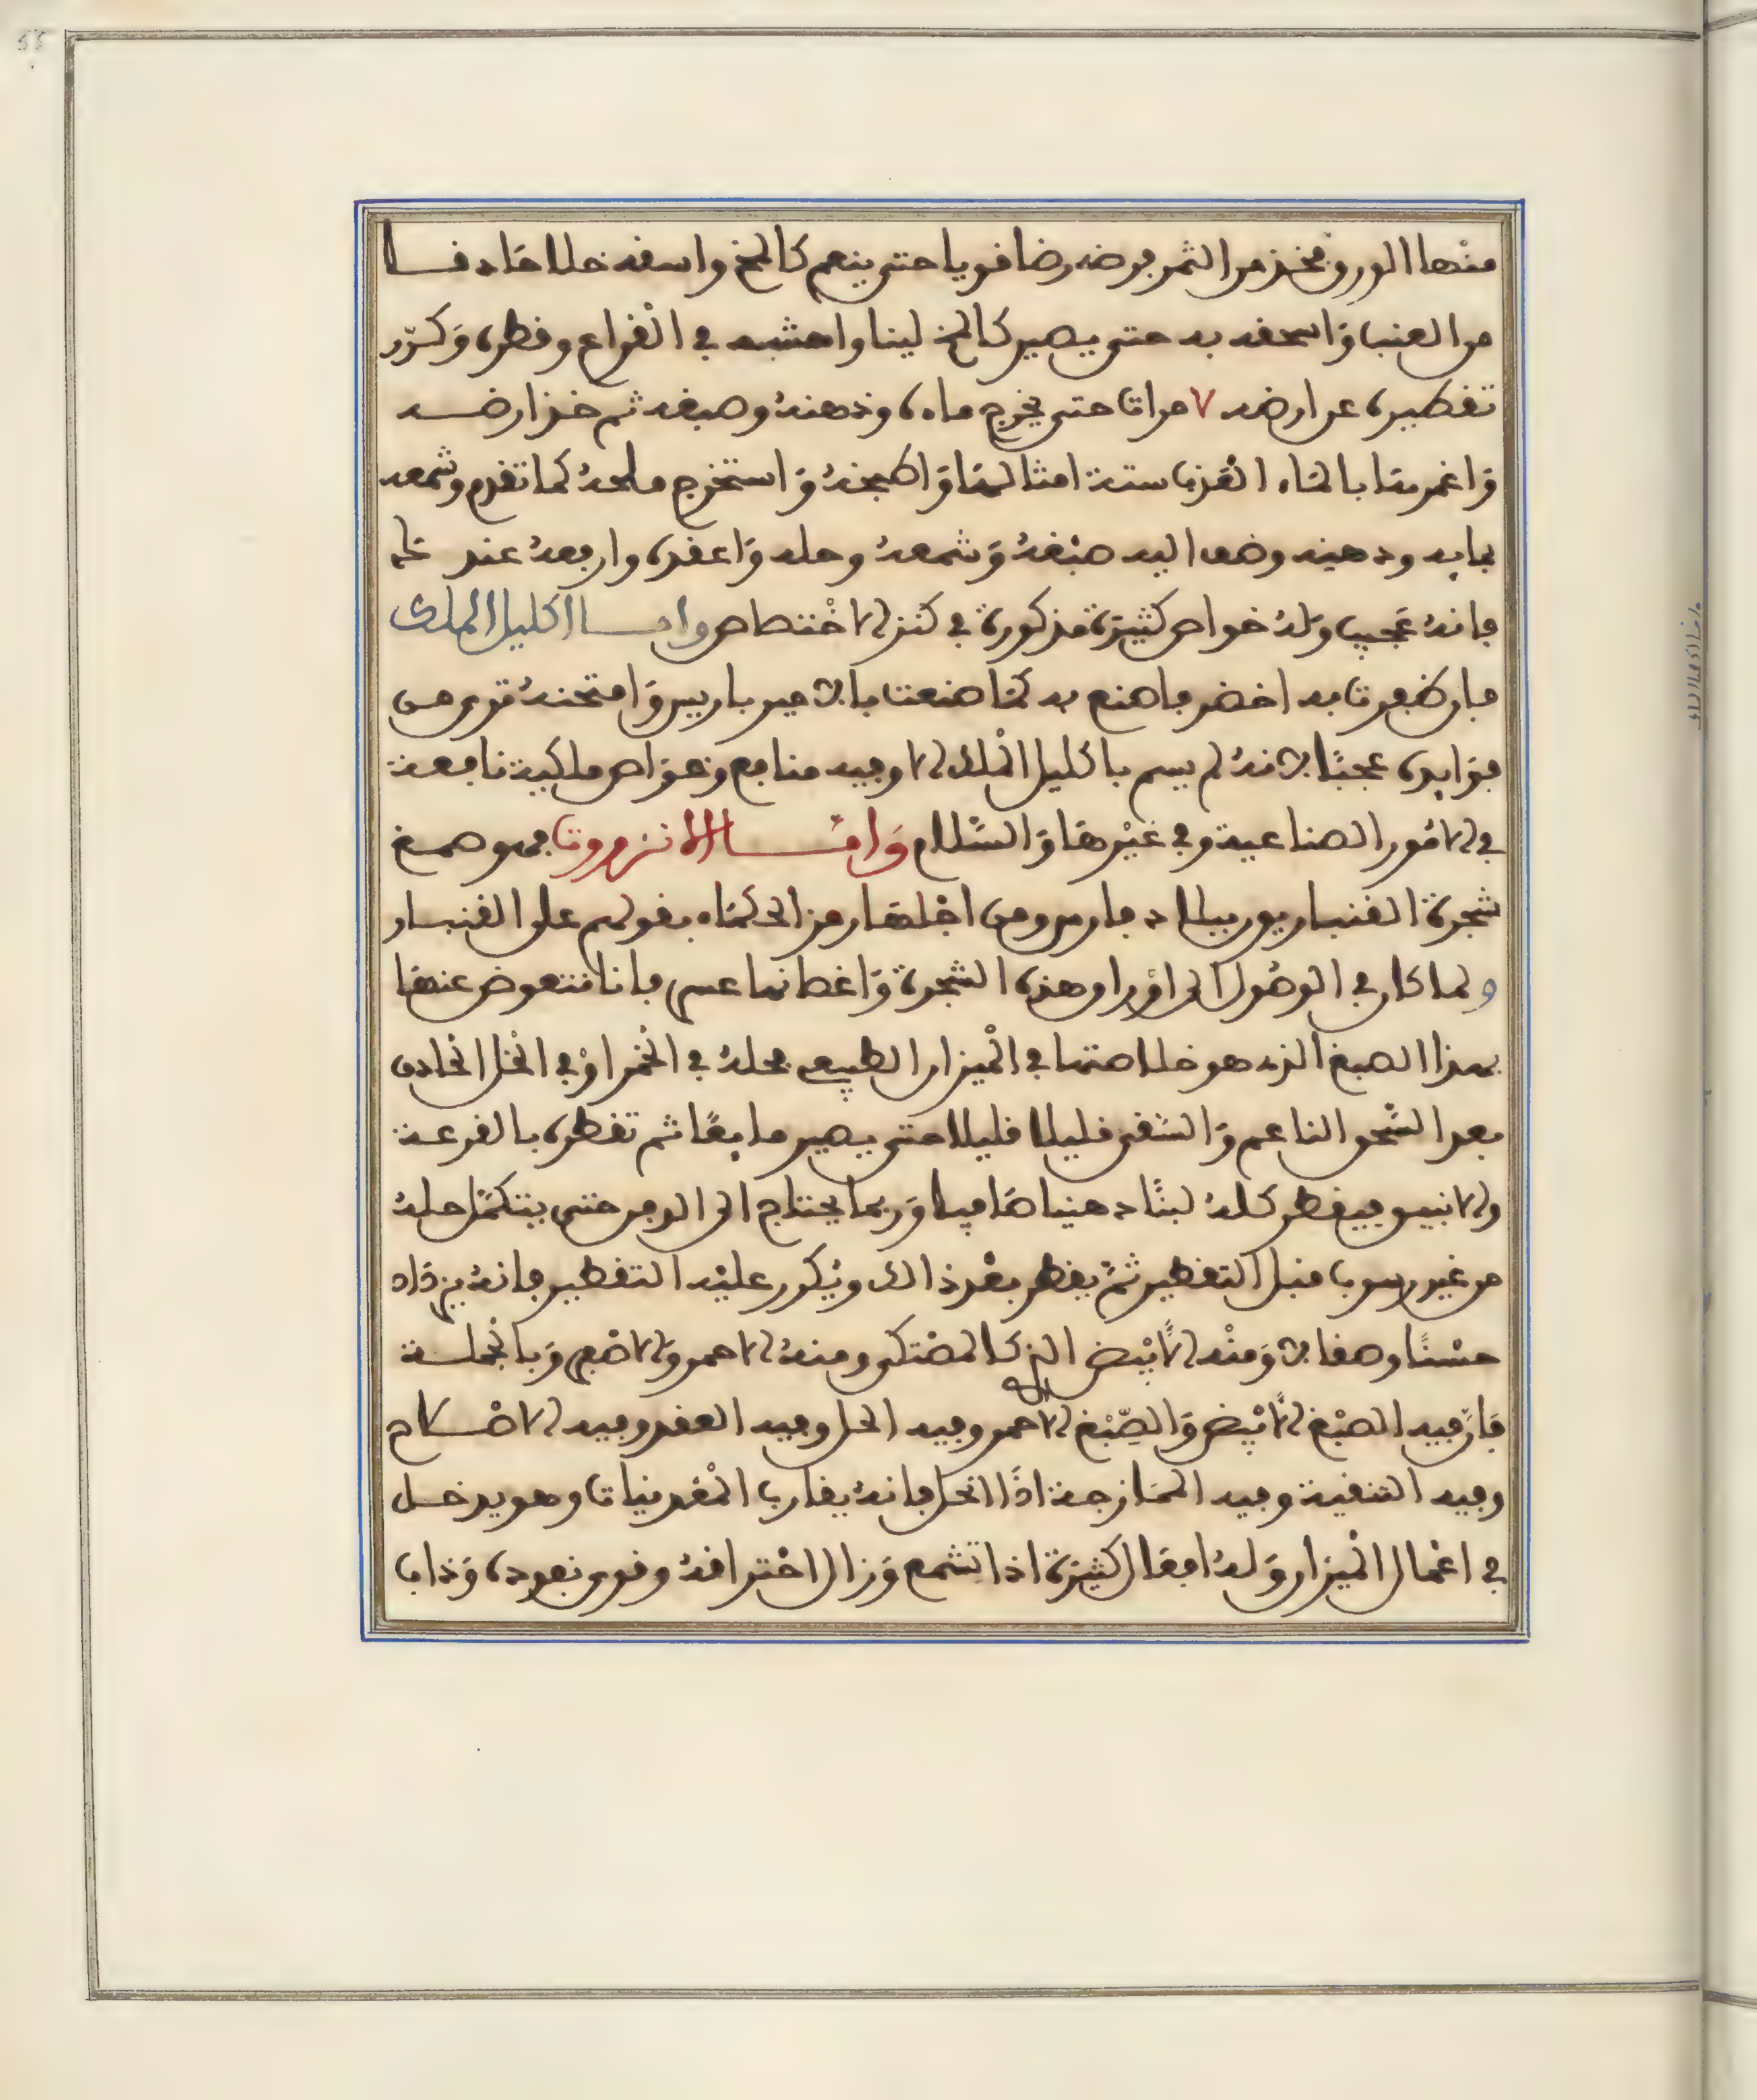 منها الورق فخذ من الثمر فرضه رضا قويا حتى ينعم كالمخ واسقه خلا حاذقا
من العنب وَاسحقه به حتى يصير كالمخ لينا واحشه في الْقراع وقطره وَكرّر
تقطيره عن ارضه ٧ مرات حتى يخرج ماءه ودهنهُ وصبغه ثم خذ ارضه
وَاغمرها بالمَاء الْعذب ستة امثالهَا وَاطبخهُ وَاستخرج ملحهُ كما تقدم وشمعه
بمايه ودهنه وضف اليه صبْغهُ وَشمعهُ وحله وَاعقده وارفعهُ عندك
فانهُ عَجيب وَلهُ خواص كثيرَة مذكورة في كنز الاخْتصاص وامـــا اكليل الملك
فان ظفرت به اخضر فاصنع به كمَا صنعت بالامير باريس وَامتحنهُ ترى من
فوَايده عجبًا لانهُ لم يسم باكليل الْملك الا وفيه منافع وخوَاص ملكية نافعة
في الامُور الصناعية وفي غيْرهَا وَالسَّلام وَامَّـــا الانزروت فهو صمغ
شجرة القنبار يورببلاد فارس ومن اجْلهَا رمز الحكمَاء بقولهم على القنبار
ولما كان في الوصُول الى اوْراق هذه الشجرة وَاغصانها عسر فانا نتعوض عنهَا
بهذا الصمغ الذي هو خلاصتها في الْميزان الطبيعي فحلهُ في الْخمر اوْ في الْخل الْحاذق
بعد السَّحق الناعم وَالسَّقي قليلا قليلا حتى يصير مايعًا ثم تقطره بالقرعة
والانبيق فيقطر كلهُ لبنًا دهنيا صَافيا وَربما يحتاج الى الدفن حتى يتكمَّل حلهُ
من غير رسوب قبل التقطير ثمَّ يقطر بعْد ذالك ويُكرر عليْه التقطير فانهُ يزدَاد
حسْنًا وصفا لا وَمنْه الابْيض الذي كالمصْتكى ومنهُ الاحمر والاصْفر وَبالجملة
فانَّ فيه الصبْغ الابْيض وَالصِّبْغ الاحمر وفيه الحل وفيه العقد وفيه الاصْلاح
وفيه التنقية وفيه الممَازجة اذَا انحل فانهُ يقارب الْمعْدنيات وهو يدخل
في اعْمال الْميزان وَلهُ افعَال كثيرَة اذا تشمع وَزال احْتراقهُ وقوى نفوده وَذاب